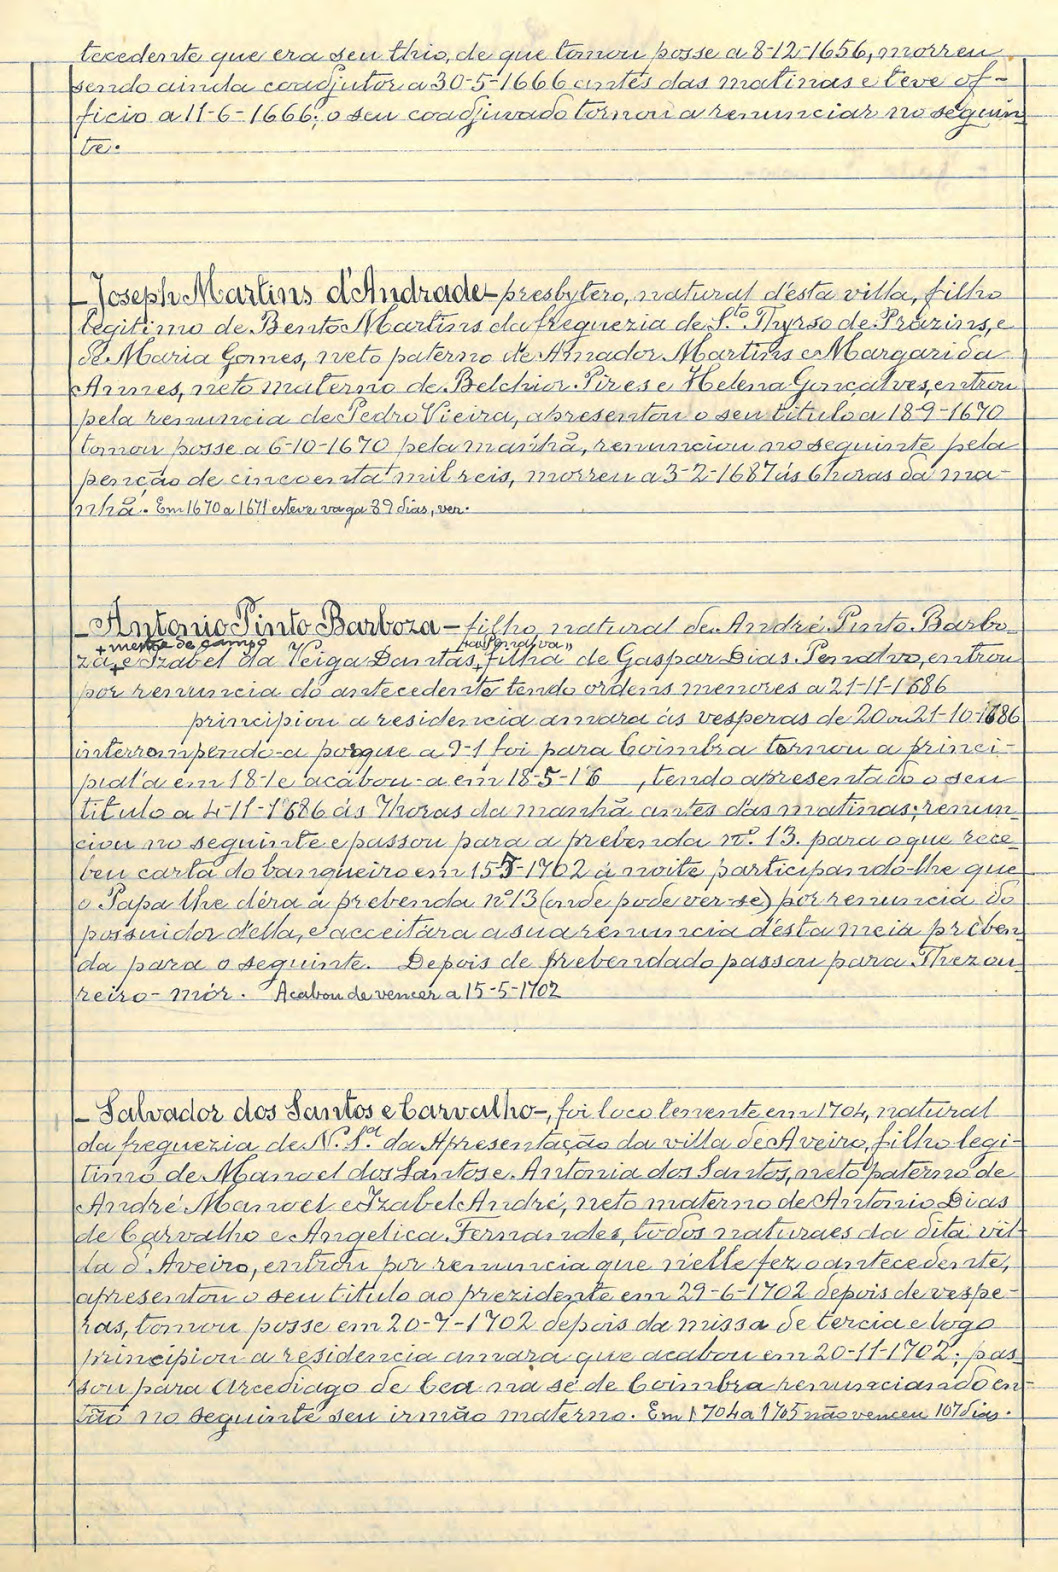 tecedente que era seu thio, de que tomou posse a 8-12-1656, morreu
sendo ainda coadjutor a 30-5-1666 antes das matinas e teve of-
ficio a 11-6-1666; o seu coadjuvado tornou a renunciar no seguin
te.
- Joseph Martins d'Andrade - presbytero, natural d'esta villa, filho
legitimo de Bento Martins da freguezia de S.to Thyrso de Prazins, e
de Maria Gomes, neto paterno de Amador Martins e Margarida
Annes, neto materno de Belchior Pires e Helena Gonçalves, entrou
pela renuncia de Pedro Vieira, apresentou o seu titulo a 18-9-1670
tomou posse a 6-10-1670 pela manhã, renunciou no seguinte pela
penção de cincoenta mil reis, morreu a 3-2-1687 ás 6 horas da ma-
nhã. Em 1670 a 1671 esteve vaga 89 dias, ver.
- Antonio Pinto Barboza - filho natural de André Pinto Barbo-
+ mestre de campo "a Penalva"
za + e Izabel da Veiga Dantas, filha de Gaspar Dias Penalvo, entrou
por renuncia do antecedente tendo ordens menores a 21-11-1686
principiou a residencia amara ás vesperas de 20 ou 21-10-1686
interrompendo-a porque a 9-1 foi para Coimbra tornou a princi-
pial'a em 18-1 e acabou-a em 18-5-16 , tendo apresentado o seu
titulo a 4-11-1686 ás 7 horas da manhã antes das matinas; renun-
ciou no seguinte e passou para a prebenda nº. 13. para o que rece-
beu carta do banqueiro em 15-5-1702 á noite participando-lhe que
o Papa lhe déra a prebenda nº 13 (onde pode ver-se) por renuncia do
possuidor d'ella, e acceitára a sua renuncia d'esta meia preben
da para o seguinte. Depois de prebendado passou para Thezou
reiro-mór. Acabou de vencer a 15-5-1702
- Salvador dos Santos e Carvalho -, foi loco tenente em 1704, natural
da freguezia de N. S.ª da Apresentação da villa de Aveiro, filho legi-
timo de Manoel dos Santos e Antonia dos Santos, neto paterno de
André Manoel e Izabel André, neto materno de Antonio Dias
de Carvalho e Angelica Fernandes, todos naturaes da dita vil-
la d'Aveiro, entrou por renuncia que n'elle fez o antecedente,
apresentou o seu titulo ao prezidente em 29-6-1702 depois de vespe-
ras, tomou posse em 20-7-1702 depois da missa de tercia e logo
principiou a residencia amara que acabou em 20-11-1702; pas
sou para Arcediago de Cea na sé de Coimbra renunciando en-
tão no seguinte seu irmão materno. Em 1704 a 1705 não venceu 107 dias.